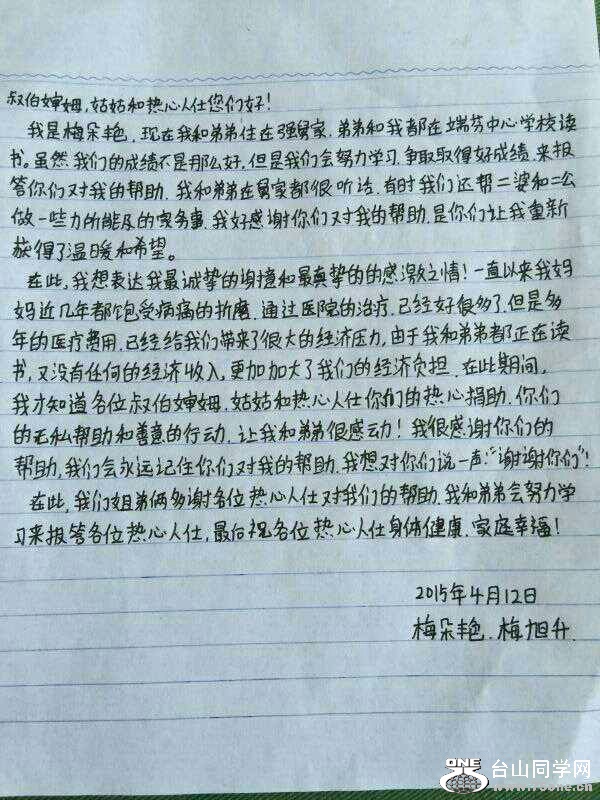 叔伯婶姆,姑姑和热心人仕您们好!
我是梅朵艳,现在我和弟弟住在强舅家,弟弟和我都在端芬中心学校读
书。虽然我们的成绩不是那么好,但是我们会努力学习,争取取得好成绩,来报
答你们对我的帮助,我和弟弟在舅家都很听话,有时我们还帮二婆和二公
做一些力所能及的家务事,我好感谢你们对我的帮助,是你们让我重新
获得了温暖和希望。
在此,我想表达我最诚挚的谢意和最真挚的的感激之情!一直以来我妈
妈近几年都饱受病痛的折磨,通过医院的治疗,已经好很多了,但是多
年的医疗费用,已经给我们带来了很大的经济压力,由于我和弟弟都正在读
书,又没有任何的经济收入,更加加大了我们的经济负担,在此期间,
我才知道各位叔伯婶姆,姑姑和热心人仕你们的热心捐助,你们
的无私帮助和善意的行动,让我和弟弟很感动!我很感谢你们的
帮助,我们会永远记住你们对我的帮助,我想对你们说一声:"谢谢你们"!
在此,我们姐弟俩多谢各位热心人仕对我们的帮助,我和弟弟会努力学
习来报答各位热心人仕,最后祝各位热心人仕身体健康,家庭幸福!
2015年4月12日
梅朵艳,梅旭升
ONE 台山同学网